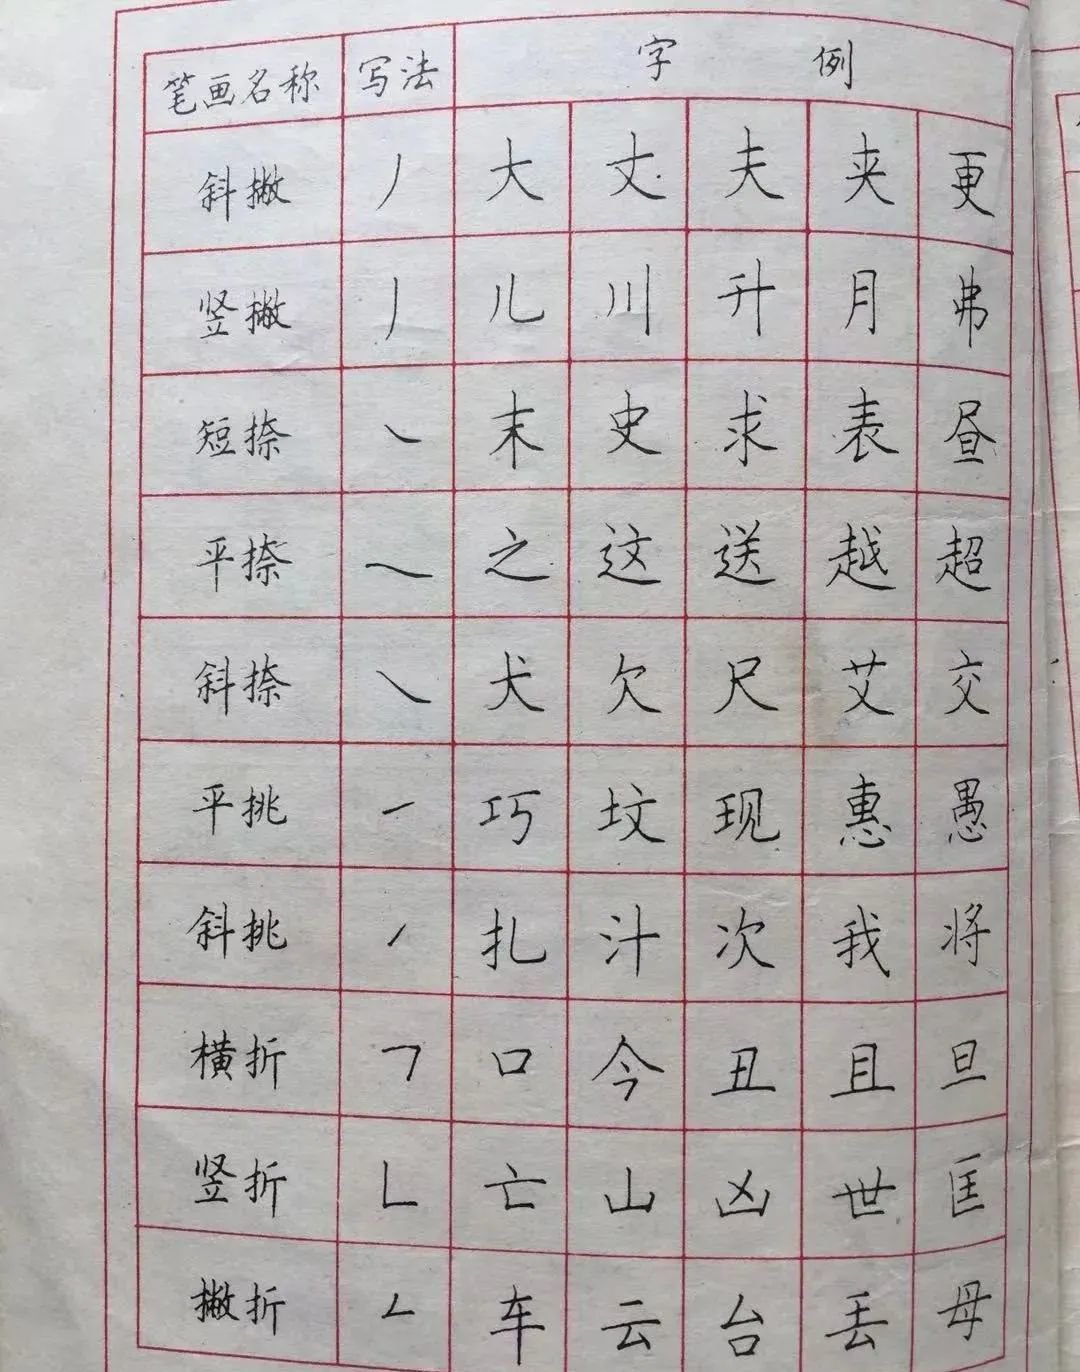 笔画名称 写法 字例
斜撇 丿 大 丈 夫 夹 更
竖撇 丿 儿 川 升 月 弗
短捺 ㇏ 末 史 求 表 昼
平捺 ㇏ 之 这 送 越 超
斜捺 ㇏ 犬 欠 尺 艾 交
平挑 ㇀ 巧 坟 现 惠 愚
斜挑 ㇀ 扎 汁 次 我 将
横折 𠃍 口 今 丑 且 旦
竖折 𠃊 亡 山 凶 世 匡
撇折 𠃋 车 云 台 丢 母